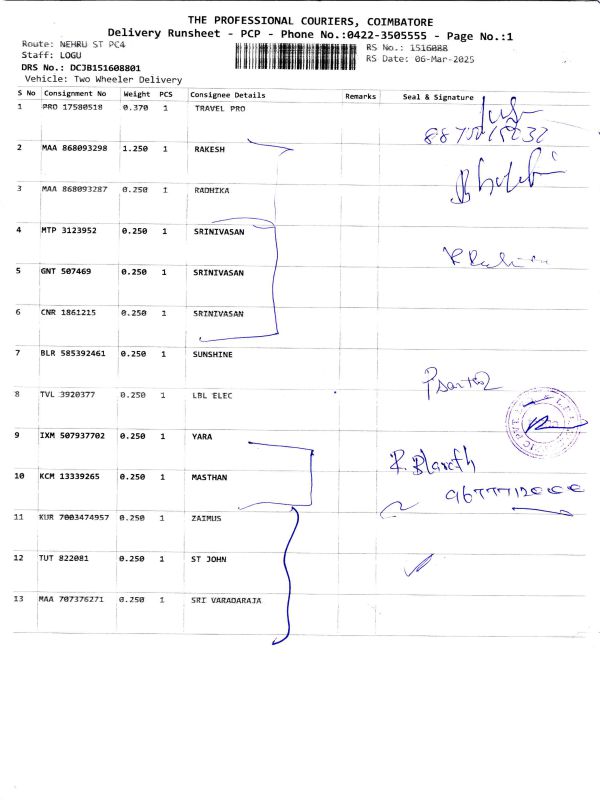 THE PROFESSIONAL COURIERS, COIMBATORE
Delivery Runsheet - PCP - Phone No.:0422-3505555 - Page No.:1
Route: NEHRU ST PC4
RS No.: 1516088
Staff: LOGU
RS Date: 06-Mar-2025
DRS No.: DCJB151608801
Vehicle: Two Wheeler Delivery
S No Consignment No Weight PCS Consignee Details Remarks Seal & Signature
1 PRO 17580518 0.370 1 TRAVEL PRO
2 MAA 868093298 1.250 1 RAKESH
3 MAA 868093287 0.250 1 RADHIKA
4 MTP 3123952 0.250 1 SRINIVASAN
5 GNT 507469 0.250 1 SRINIVASAN
6 CNR 1861215 0.250 1 SRINIVASAN
7 BLR 585392461 0.250 1 SUNSHINE
8 TVL 3920377 0.250 1 LBL ELEC
9 IXM 507937702 0.250 1 YARA
10 KCM 13339265 0.250 1 MASTHAN
11 KUR 7003474957 0.250 1 ZAIMUS
12 TUT 822081 0.250 1 ST JOHN
13 MAA 707376271 0.250 1 SRI VARADARAJA